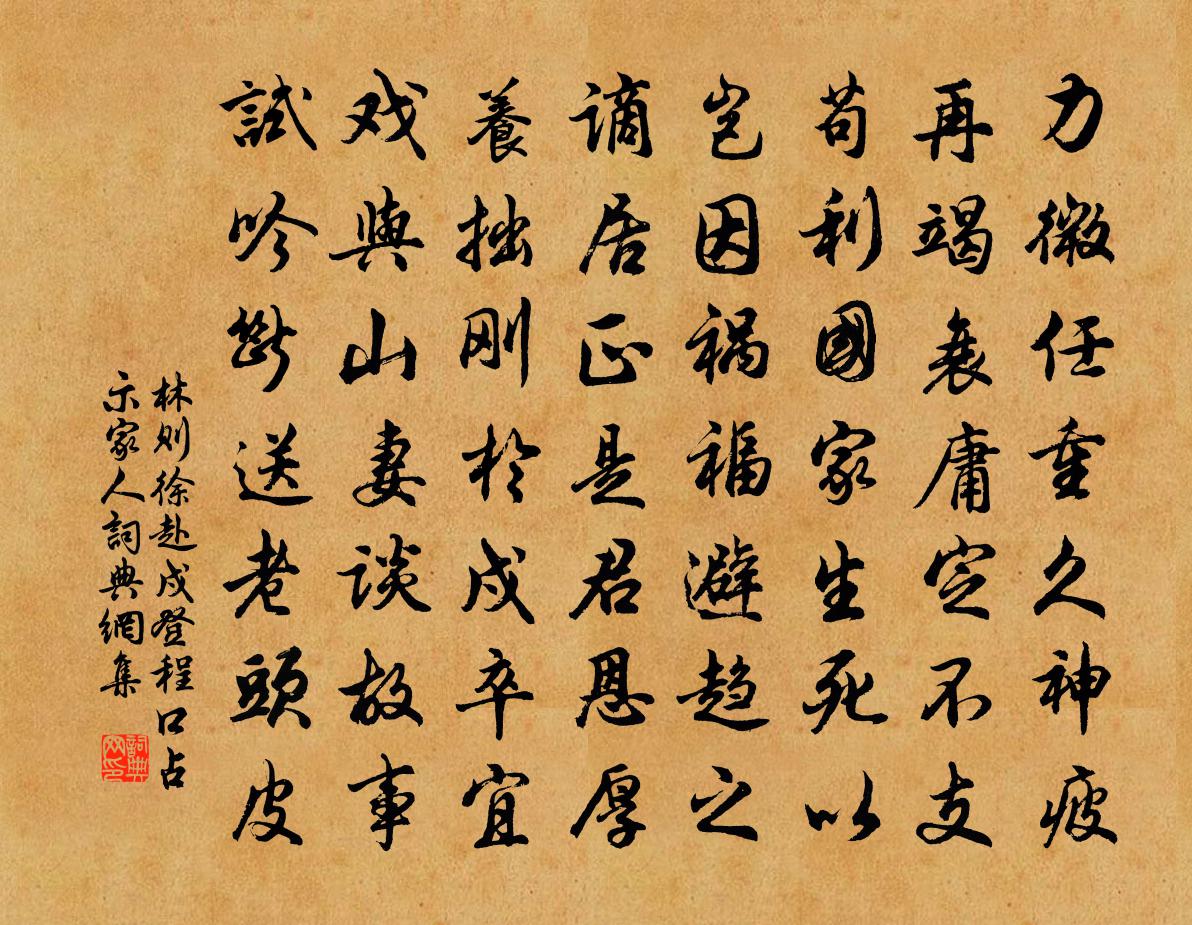 力微任重久神疲
再竭衰庸定不支
苟利國家生死以
岂因祸福避趋之
谪居正是君恩厚
養拙刚於戍卒宜
戏與山妻谈故事
試吟断送老頭皮
林则徐赴戍登程口占
示家人詞典網集
詞典
网印